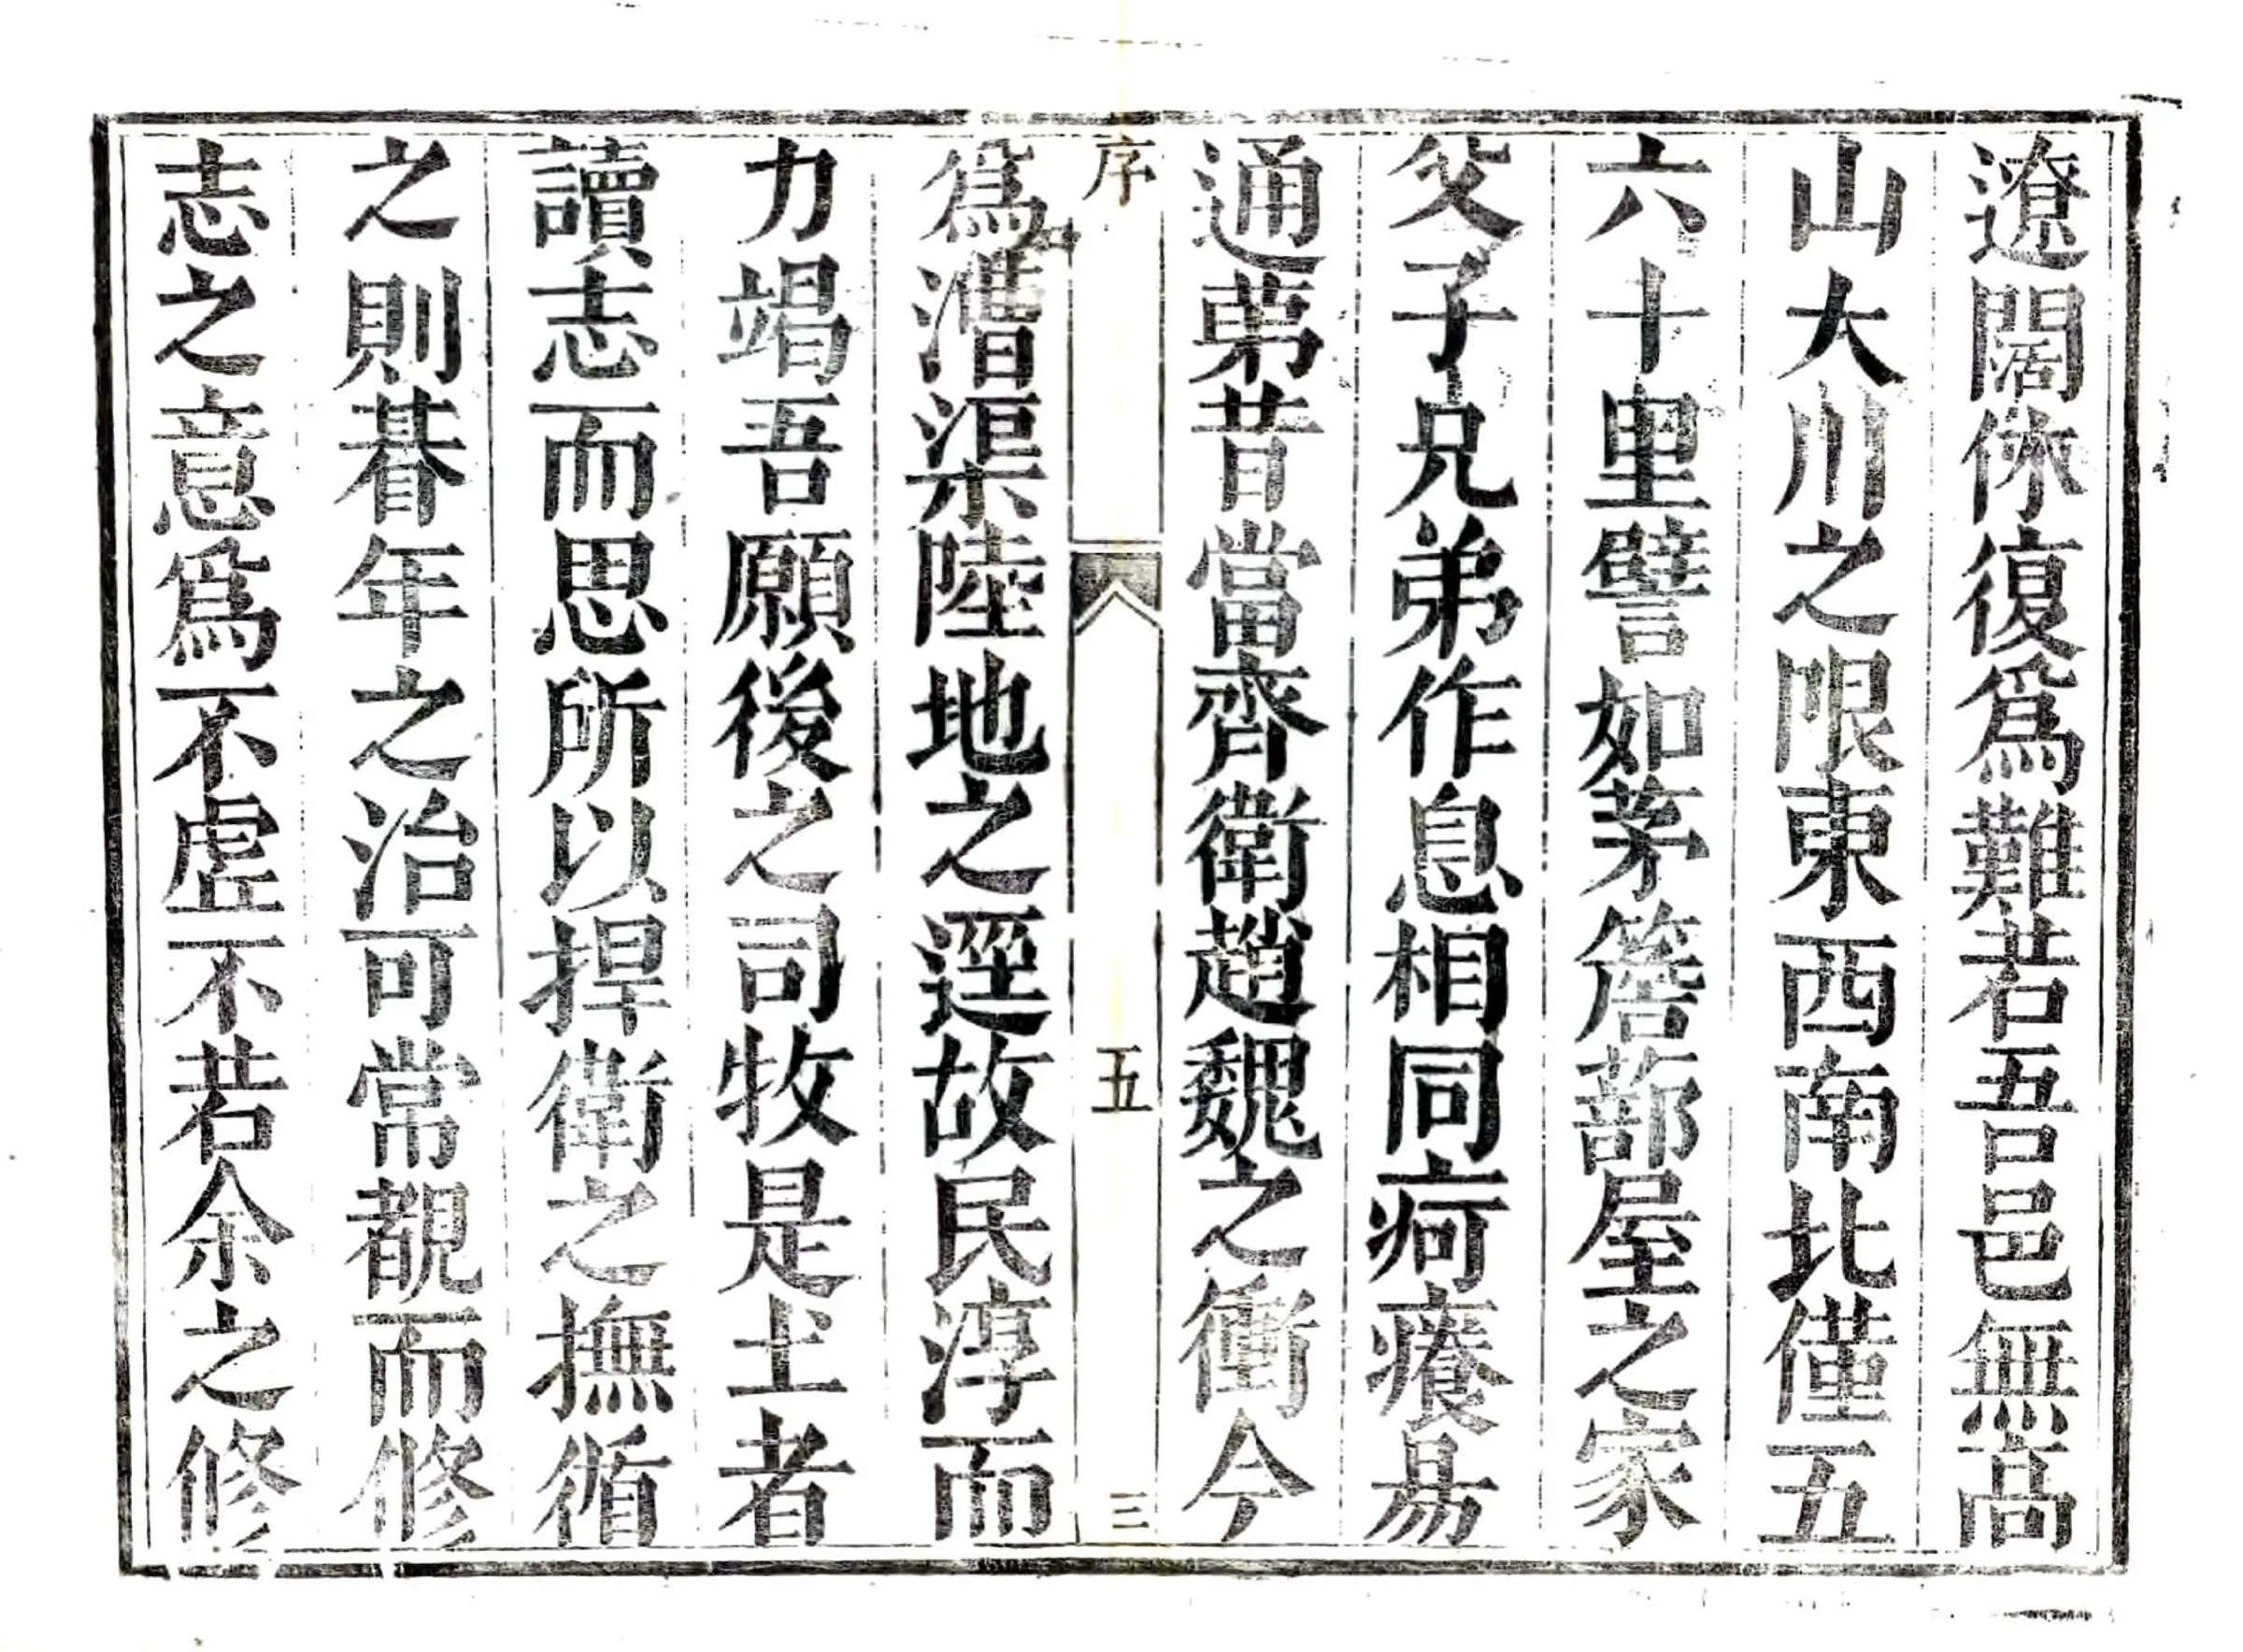 遼闊倏復爲難若吾邑無高
山大川之限東西南北僅五
六十里譬如茅簷蔀屋之家
父子兄弟作息相同疴癢易
通苐昔當齊衛趙魏之衝今
序 五 三
爲漕渠陸地之逕故民淳而
力竭吾願後之司牧是土者
讀志而思所以捍衛之撫循
之則朞年之治可常覩而修
志之意爲不虛不若余之修